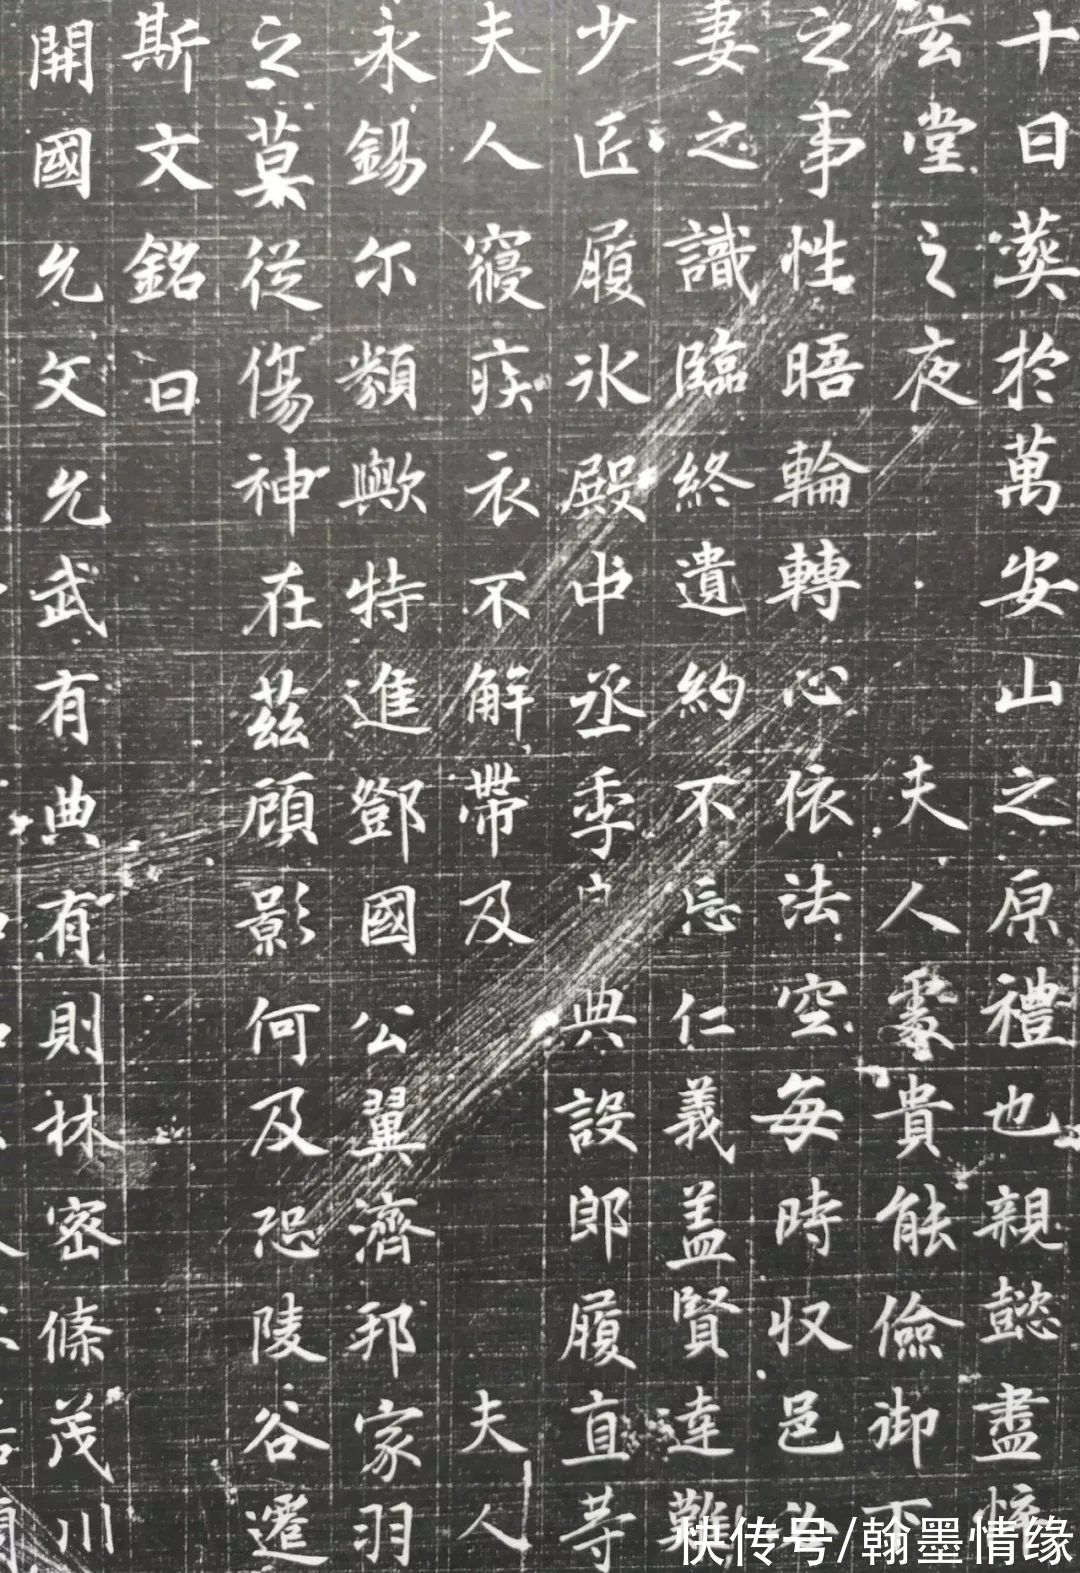 十日葬於萬安山之原禮也親懿盡悴
玄堂之夜夫人處貴能儉御下
之事性晤輪轉心依法空每時収邑
妻之識臨終遺約不忘仁義盖賢達難
少匠履氷殿中丞季典設郎履直等
夫人寢疾衣不解帶及夫人
永錫尔類歟特進鄧國公翼濟邦家羽
之莫從傷神在茲顧影何及恐陵谷遷
斯文銘曰
開國允文允武有典有則林密條茂川
快传号/翰墨情缘